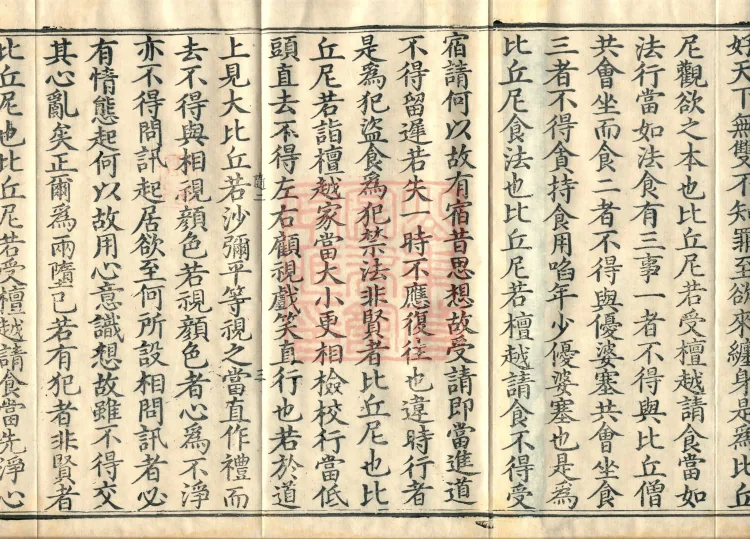 天下無雙人不知罪至欲來纏身是爲比丘
尼觀欲之本也比丘尼若受檀越請食當如
法行當如法食有三事一者不得與比丘僧
共會坐而食二者不得與優婆塞共會坐食
三者不得貪持食用啗年少優婆塞也是爲
比丘尼食法也比丘尼若檀越請食不得受
宿請何以故有宿昔思想故受請即當進道
不得留遲若失一時不應復往也違時行者
是爲犯盜食爲犯禁法非賢者比丘尼也比
丘尼若詣檀越家當大小更相檢校行當低
頭直去不得左右顧視戲笑直行也若於道
二 三
上見大比丘若沙彌平等視之當直作禮而
去不得與相視顔色若視顔色者心爲不淨
亦不得問訊起居欲至何所設相問訊者必
有情態起何以故用心意識想故雖不得交
其心亂矣正爾爲兩墮已若有犯者非賢者
比丘尼也比丘尼若受檀越請食當先淨心